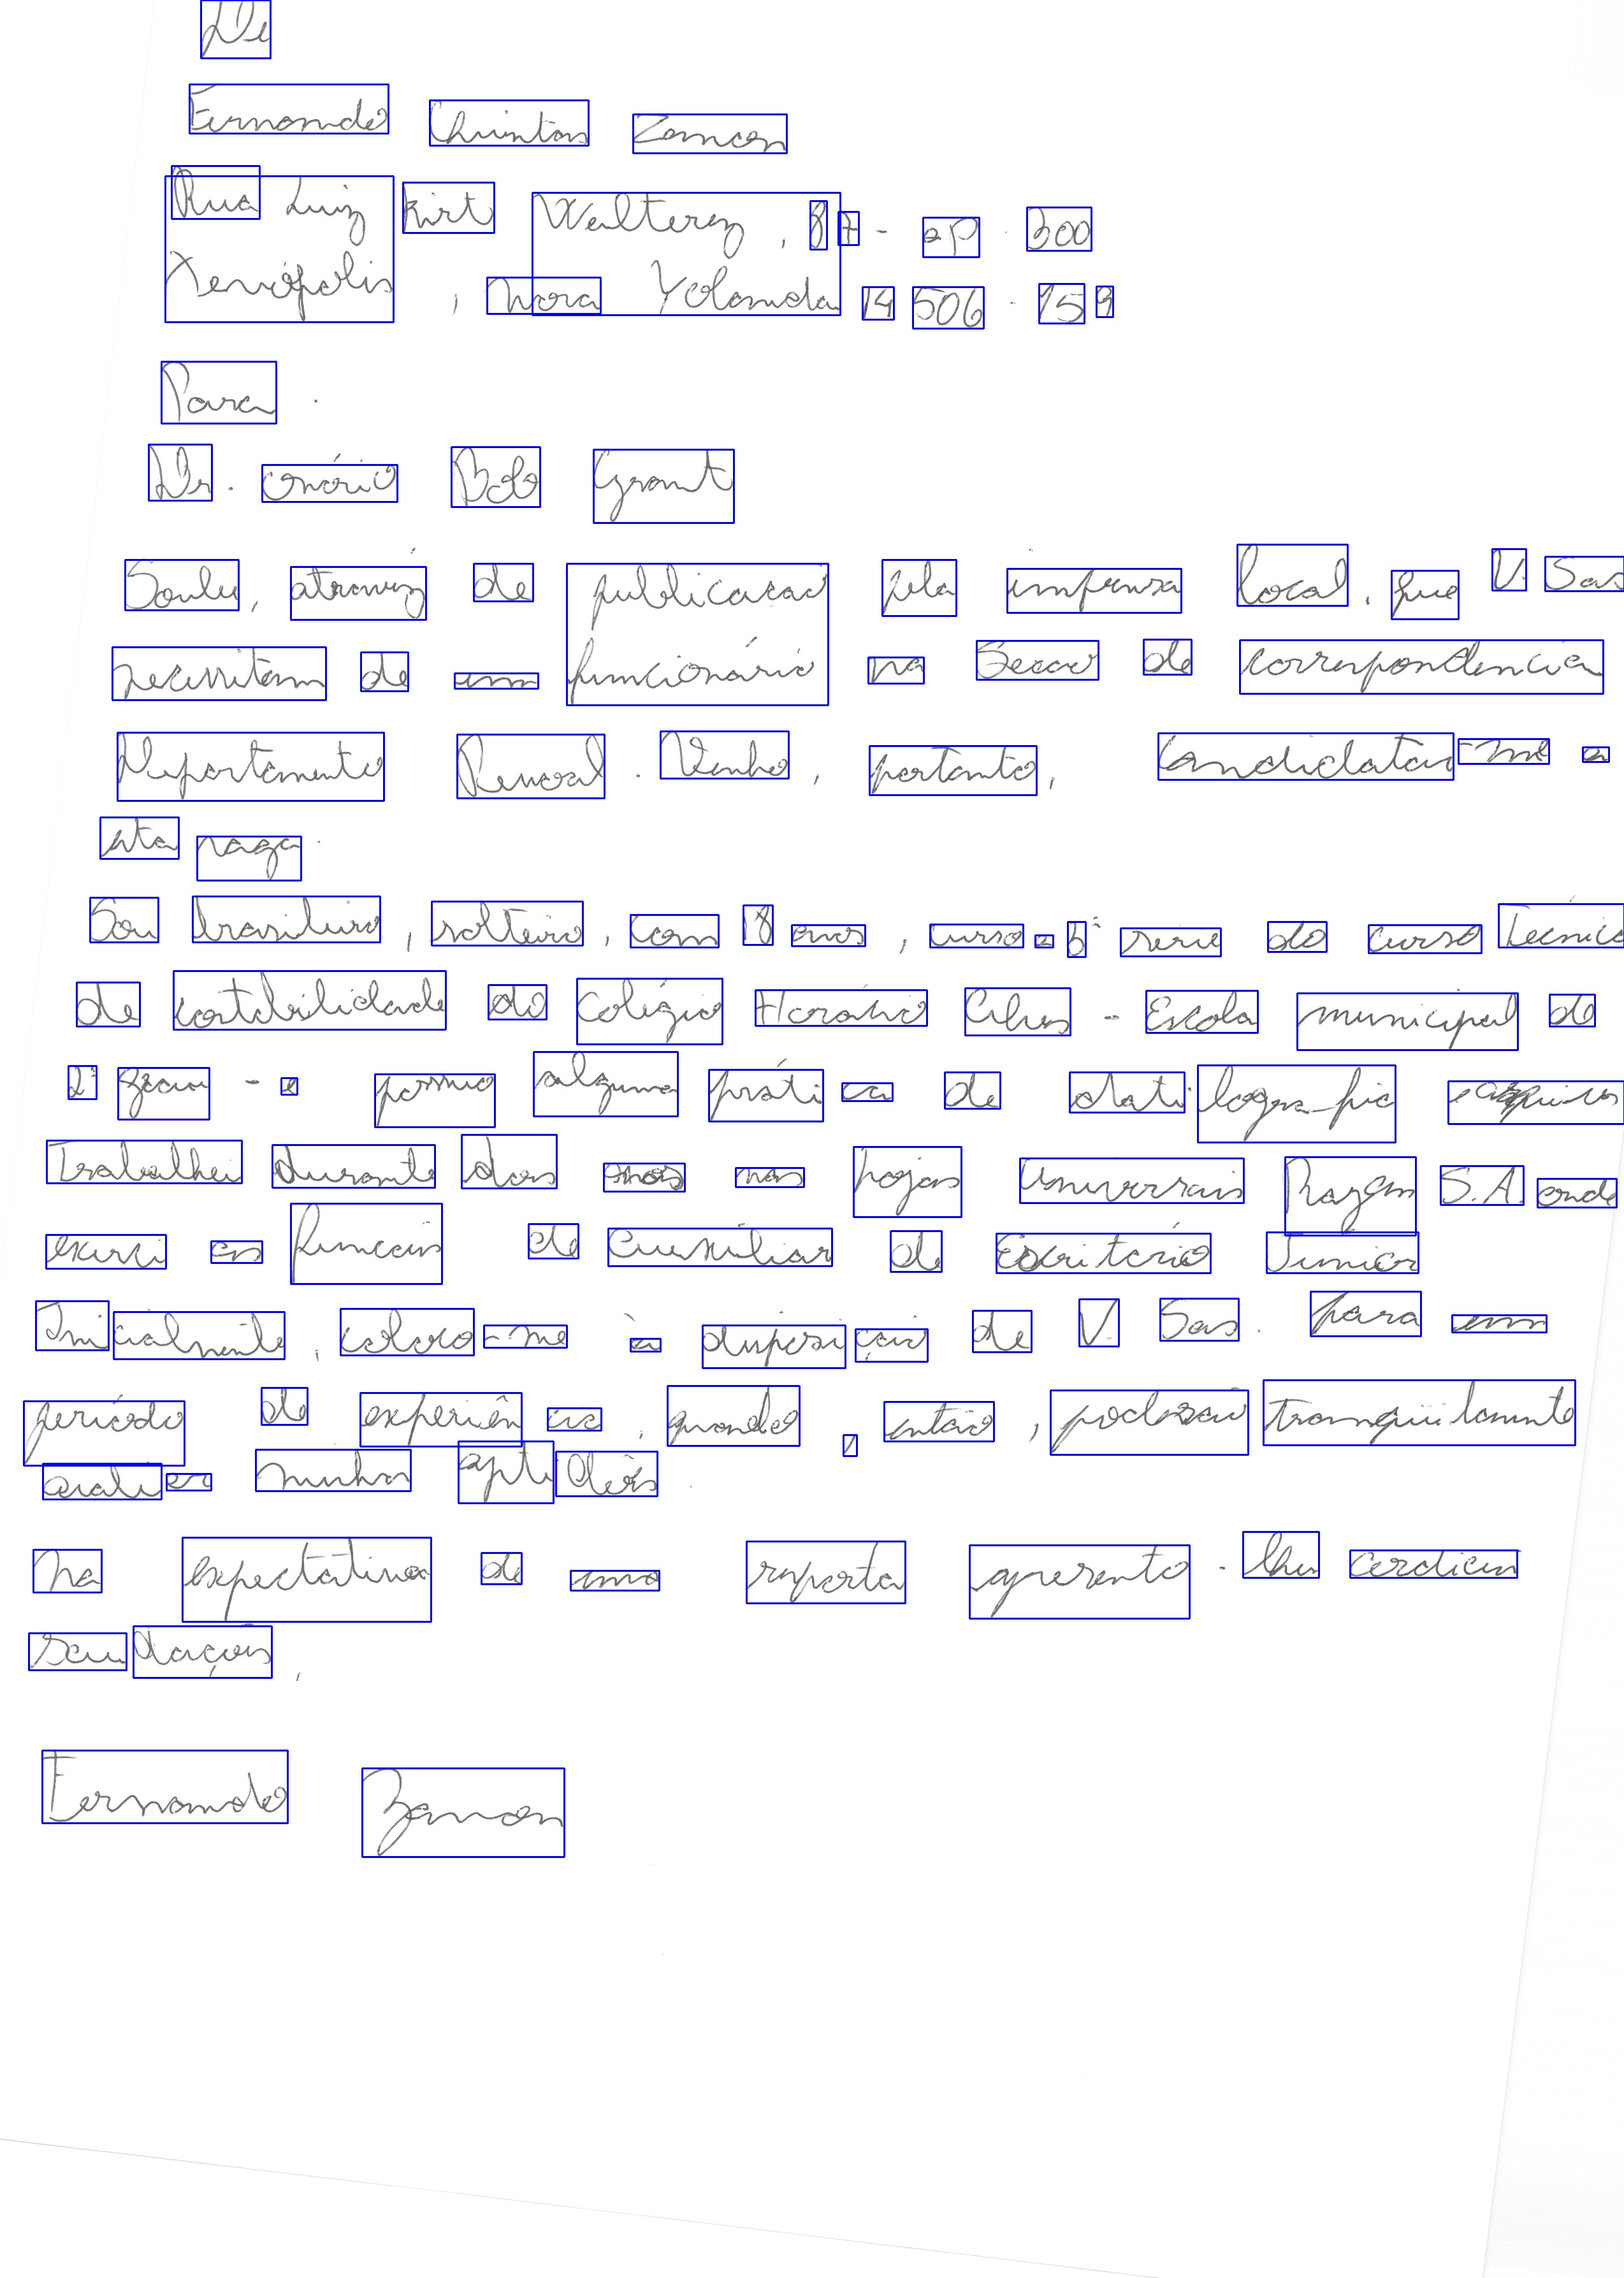 De
Fernando Quintas Zancan
Rua Luiz Kirt Walterez, 87 - ap 300
Xenópolis, Nova Yolanda 14 506 - 159
Para
Dr. Onório Bob Grant
Soube, atravez de publicação pela imprensa local, que V. Sas
necessitam de um funcionário na Secao de correspondencia
Departamento Pessoal. Venho, portanto, candidatar-me a
esta vaga.
Sou brasileiro, solteiro, com 18 anos, curso a 5ª serie do curso Técnico
de contabilidade do Colégio Horácio - Escola municipal de
2º grau - e possuo alguma prática de datilografia
Trabalhei durante dois anos nas Lojas Universais S.A. onde
exerci as funcões de Auxiliar de Escritório Junior
Inicialmente, coloco-me à disposição de V. Sas. para um
período de experiência, quando, então, poderão tranqüilamente
avaliar minha aptidões.
Na expectativa de uma resposta apresento-lhe cordiais
saudações,
Fernando Zancan